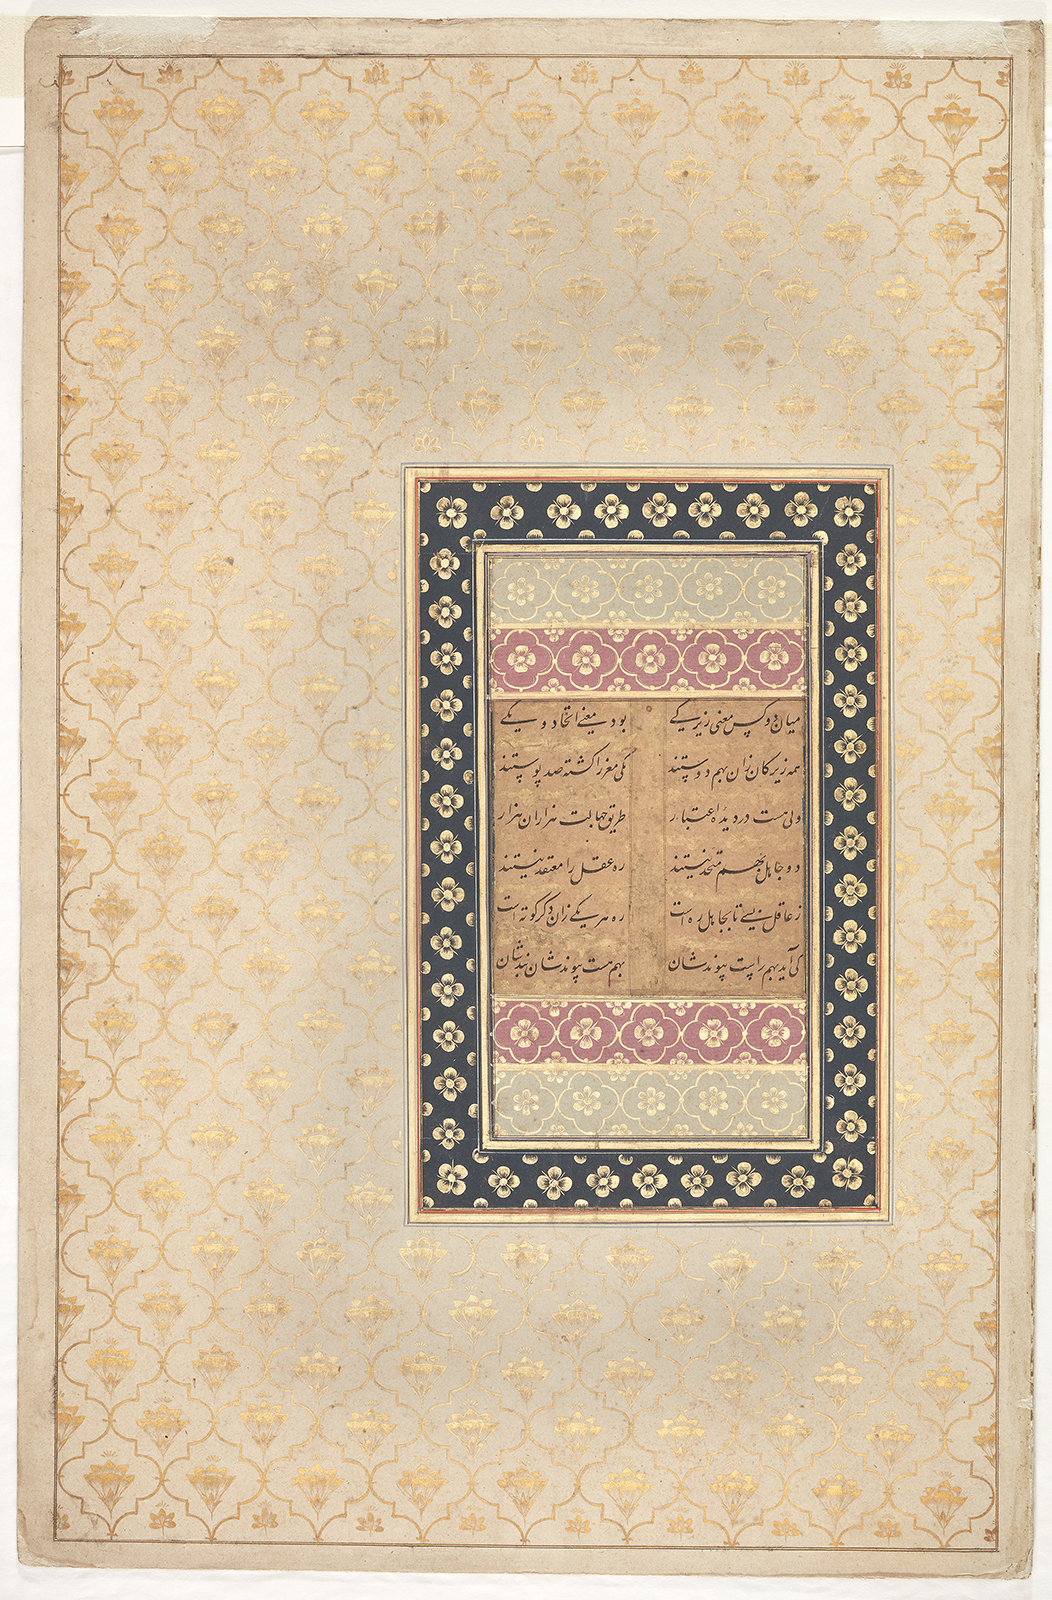 میان دو کس معنی زیرکی بود معنی اتحاد و یکی
همه زیرکان زان بهم دوستند یکی مغز را کشته صد پوستند
ولی هست در دیده اعتبار طریق جهالت هزاران هزار
دو جاهل بهم متحد نیستند ره عقل را معتقد نیستند
ز عاقل بسی تا بجاهل ره است ره هر یکی زان دکر کوته است
کی آید بهم راست پیوندشان بهم هست پیوندشان